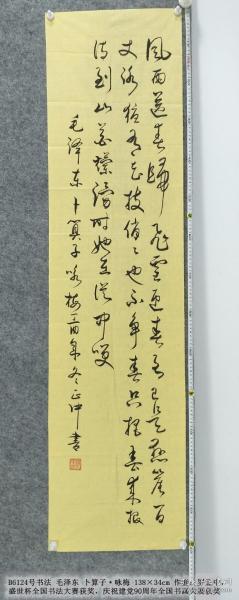 風雨送春歸飛雪迎春到已是懸崖百
丈冰猶有花枝俏俏也不爭春只把春來報
待到山花爛漫時她在叢中笑
毛泽东卜算子咏梅
冬正中書
B6124号书法 毛泽东 卜算子·咏梅 138×34cm
盛世杯全国书法大赛获奖，庆祝建党90周年全国书画大展获奖